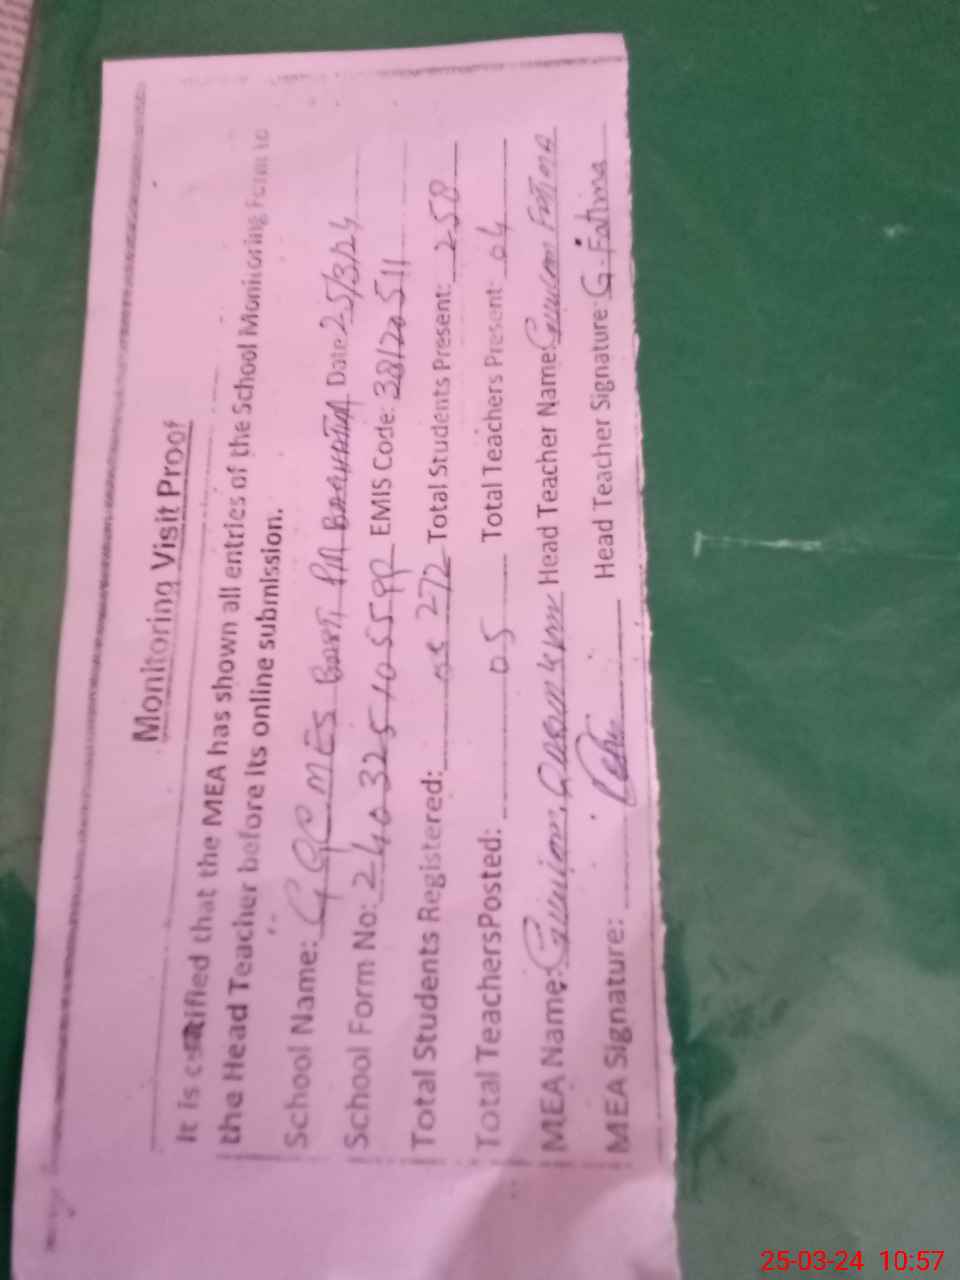 Monitoring Visit Proof
It is certified that the MEA has shown all entries of the School Monitoring Form to
the Head Teacher before its online submission.
School Name: GGCMES Basti Date: 25/3/24
School Form No: EMIS Code: 38120511
Total Students Registered: 272 Total Students Present: 258
Total TeachersPosted: 05 Total Teachers Present: 04
MEA Name: Head Teacher Name: Fatima
MEA Signature: Head Teacher Signature: G. Fatima
25-03-24 10:57